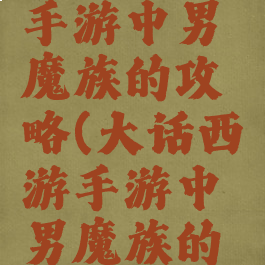 手游中男
魔族的攻
略(大话西
游手游中
男魔族的